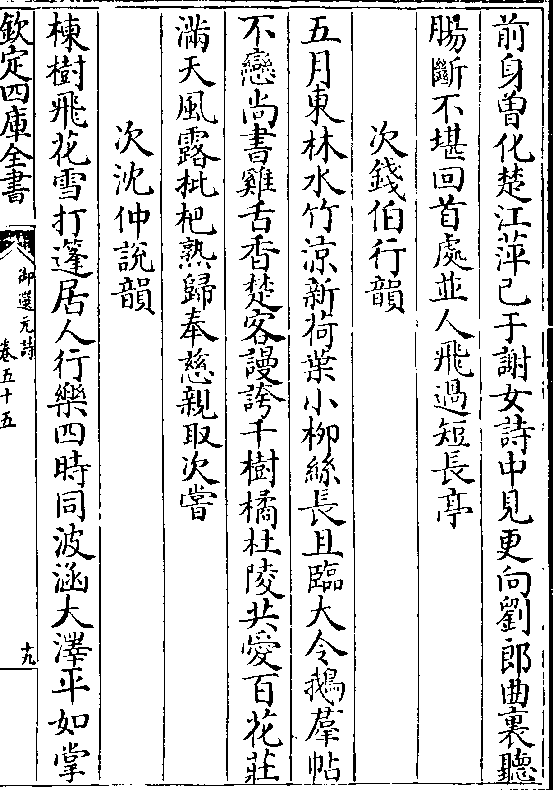 前身曽化楚江萍已于謝女詩中見更向劉郎曲裏聽
腸斷不堪回首處並人飛過短長亭
次錢伯行韻
五月東林水竹涼新荷葉小柳絲長且臨大令鵝羣帖
不戀尚書雞舌香楚客謾誇千樹橘杜陵共愛百花莊
滿天風露枇杷熟歸奉慈親取次嘗
次沈仲說韻
楝樹飛花雪打蓬居人行樂四時同波涵大澤平如掌
欽定四庫全書
御選元詩
卷五十五
十九